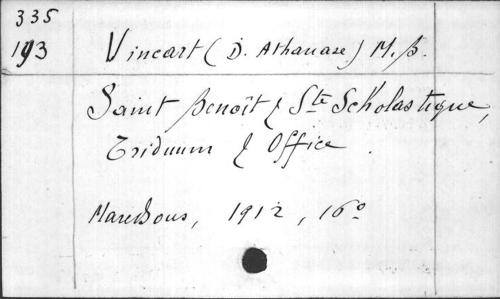 335
193 Vincart (D. Athanase) M. β.
Saint Benoît & Ste Scholastique,
Triduum & Office.
Maredsous, 1912, 16º